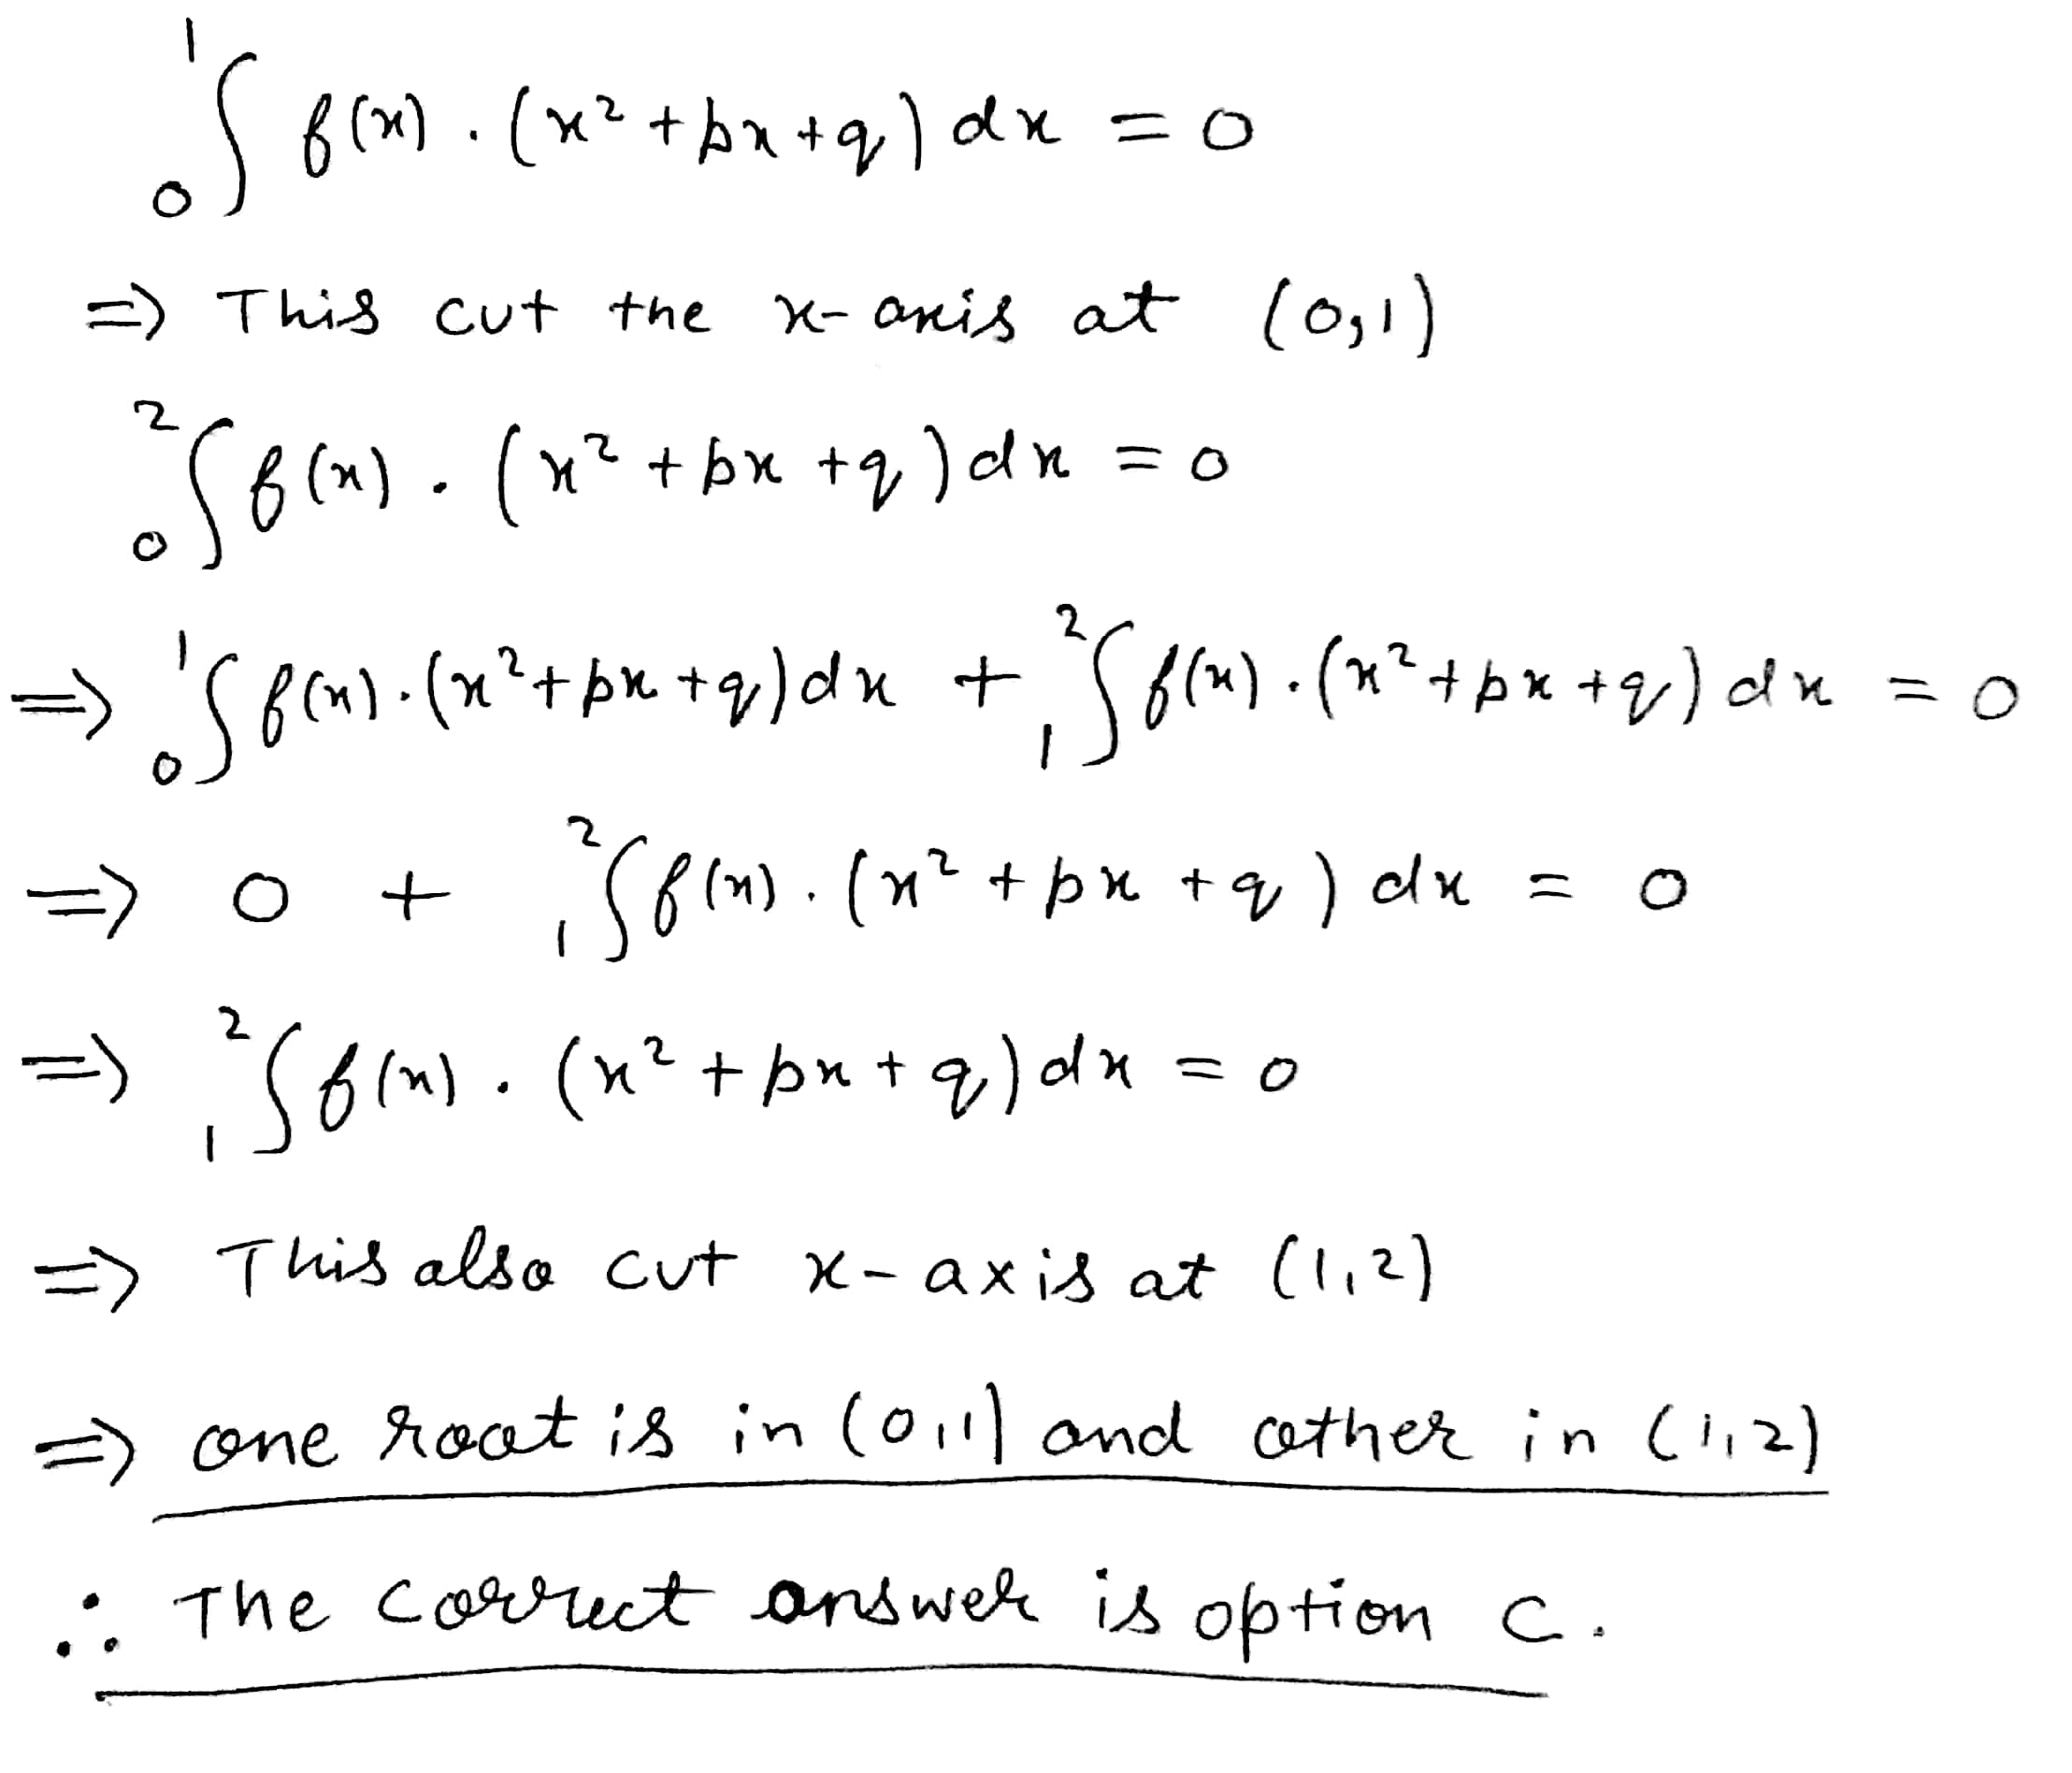 ₀∫¹ f(x) . (x² + px + q) dx = 0
=> This cut the x-axis at (0,1)
₀∫² f(x) . (x² + px + q) dx = 0
=> ₀∫¹ f(x) . (x² + px + q) dx + ₁∫² f(x) . (x² + px + q) dx = 0
=> 0 + ₁∫² f(x) . (x² + px + q) dx = 0
=> ₁∫² f(x) . (x² + px + q) dx = 0
=> This also cut x-axis at (1,2)
=> one root is in (0,1) and other in (1,2)
∴ The correct answer is option C.